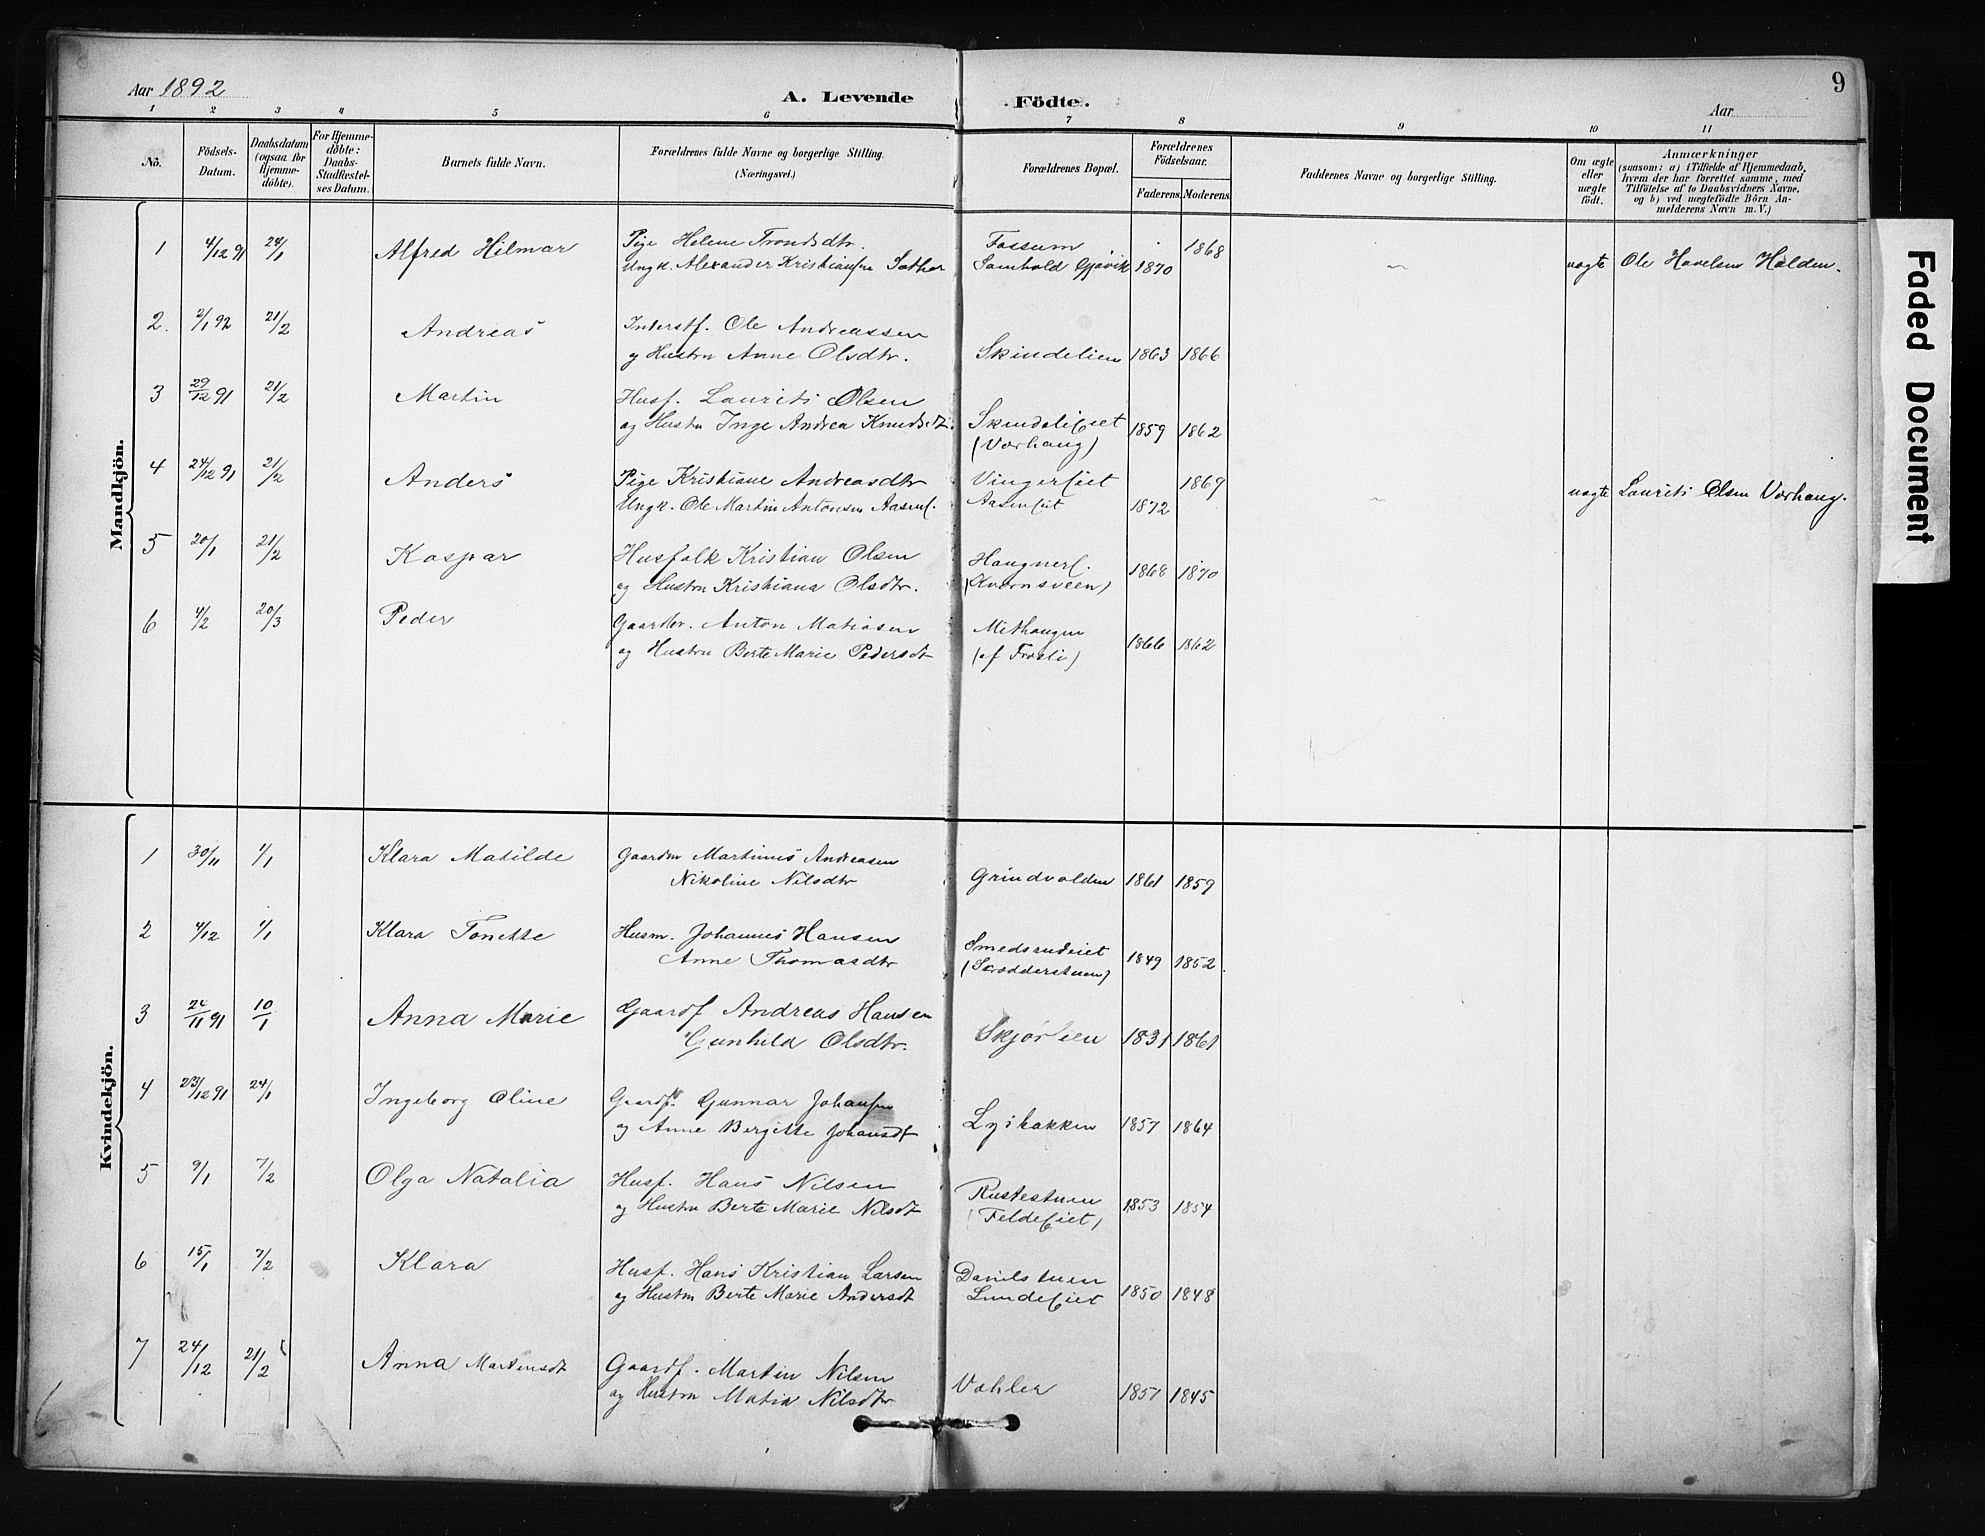 Aar 1892
A. Levende Födte.
Aar
9
1 2 3 4 5 6 7 8 9 10 11
No.
Födsels-Datum.
Daabsdatum (ogsaa for Hjemme-døbte).
For Hjemme-døbte: Daabs-Stadfæstel-ses Datum.
Barnets fulde Navn.
Forældrenes fulde Navne og borgerlige Stilling.
(Næringsvei.)
Forældrenes Bopæl.
Forældrenes Födselsaar.
Faderens. Moderens.
Faddernes Navne og borgerlige Stilling.
Om ægte eller uægte født.
Anmærkninger
(saasom: a) i Tilfælde af Hjemmedaab, hvem der har forrettet samme, med Tilföielse af to Daabsvidners Navne. og b) ved uægtefödte Börn An-melderens Navn m. V.)
Mandkjön.
1 4/12 91 24/1 Alfred Hilmar Pige Helene Trondsdtr. Fossum 1868
Ungk. Alexander Kristiansen Sæther Samhold Gjøvik 1870 uægte Ole Havelsen Halden.
2. 2/1 92 21/2 Andreas Inderstf. Ole Andreassen
og Hustru Anne Olsdtr. Skindelien 1863 1866
3 29/12 91 21/2 Martin Husf. Laurits Olsen
og Hustru Inge Andrea Knudsdtr. Skindelieiet (Værhaug) 1859 1862
4 24/12 91 21/2 Anders Pige Kristiane Andreasdtr Vingereiet 1869
Ungk. Ole Martin Antonsen Aasene. Aaseneiet 1872 uægte Laurits Olsen Værhaug.
5 20/1 21/2 Kaspar Husfolk Kristian Olsen Haugnere.
og Hustru Kristiana Olsdtr. (Kvernsveen) 1868 1870
6 4/2 20/3 Peder Gaardbr. Anton Matiasen Methaugen
og Hustru Berte Marie Pedersdt (af Frøsli) 1866 1862
Kvindekjön.
1 30/11 1/1 Klara Matilde Gaardm Martinus Andreasen
Nikoline Nilsdtr Grindvolden 1861 1859
2 4/12 1/1 Klara Tonette Husm. Johannes Hansen Smedsrudeiet
Anne Thomasdtr (Skrædderstuen) 1849 1852.
3 24/11 91 10/1 Anna Marie Gaardf Andreas Hansen
Gunhild Olsdtr. Skjørlien 1831 1861
4 23/12 91 24/1 Ingeborg Oline Gaardf. Gunnar Johansen
og Anne Bergitte Johansdt Lysbakken 1857 1864
5 9/1 7/2 Olga Natalia Husf. Hans Nilsen Rustestuen
og Hustru Berte Marie Nilsdt (Feldeeiet) 1853 1854
6 15/1 7/2 Klara Husf. Hans Kristian Larsen Danielstuen
og Hustru Berte Marie Andersdt Lundeeiet 1850 1848
7 24/12 21/2 Anna Martinsdt Gaardf. Martin Nilsen
og Hustru Matia Nilsdtr Vøhler 1851 1845
Faded Document